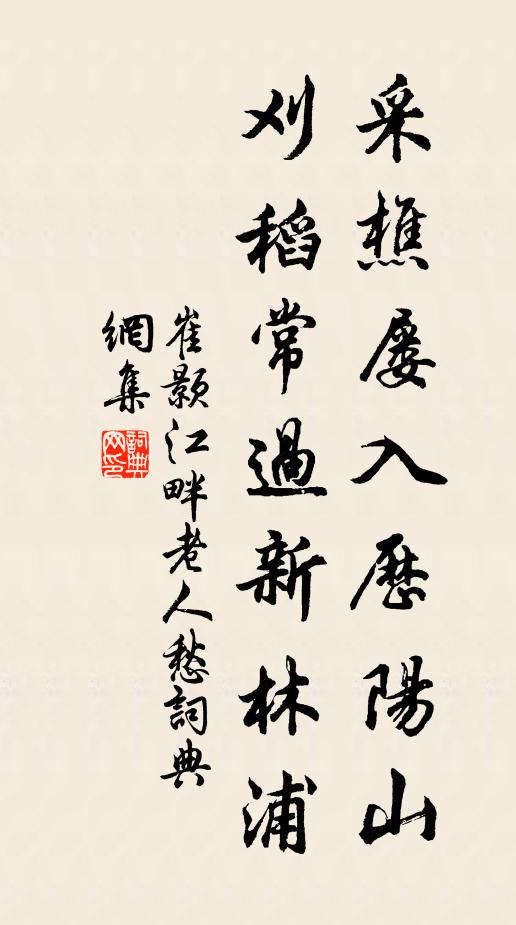 采樵屡入歷陽山
刈稻常過新林浦
崔顥江畔老人愁詞典
網集
詞典
网印